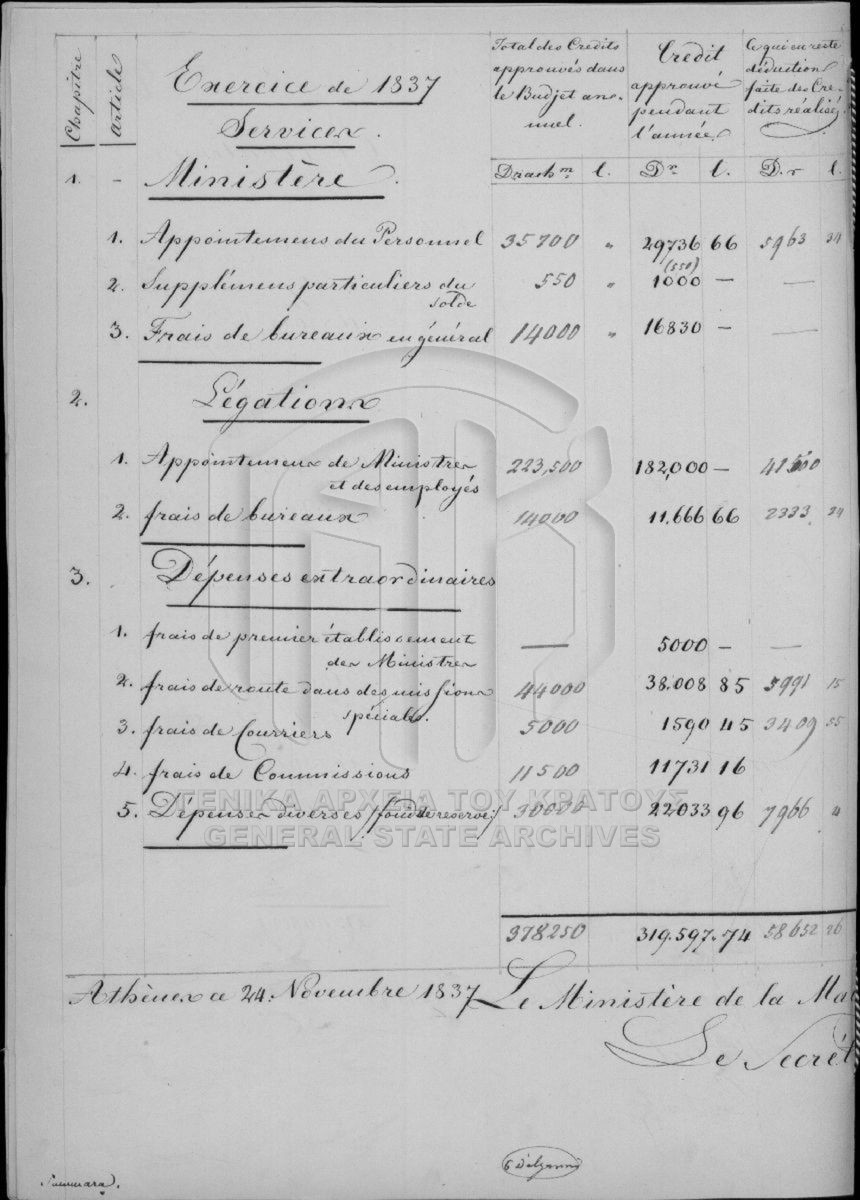 Chapitre
Article
Exercice de 1837
Services.
Total des Credits approuvés dans le Budjet annuel.
Crédit approuvé pendant l'année
Ce qui en reste déduction faite des Credits réalisés.
Drachm. l. Dr. l. Dr l.
1. – Ministère.
1. Appointemens du Personnel 35200 " 29736 66 5963 34
(550)
2. Supplémens particuliers du solde 550 " 1000 — —
3. Frais de bureaux en général 14000 " 16830 — —
2. Légations
1. Appointemens de Ministres et des employés 223,500 182,000 —
2. frais de bureaux 14000 11,666 66 2333 24
3. Dépenses extraordinaires
1. frais de premier établissement des Ministres — 5000 — —
2. frais de route dans des missions spéciales. 44000 38.008 85 5991 15
3. frais de Courriers 5000 1590 45 3409 55
4. frais de Commissions 11500 11731 16
5. Dépenses diverses /fond de reserve/ 30000 22033 96 7966 4
378250 319.597.74 58652 26
Athènes ce 24. Novembre 1837
Le Ministère de la Ma
Le Secrét
ΓΕΝΙΚΑ ΑΡΧΕΙΑ ΤΟΥ ΚΡΑΤΟΥΣ
GENERAL STATE ARCHIVES